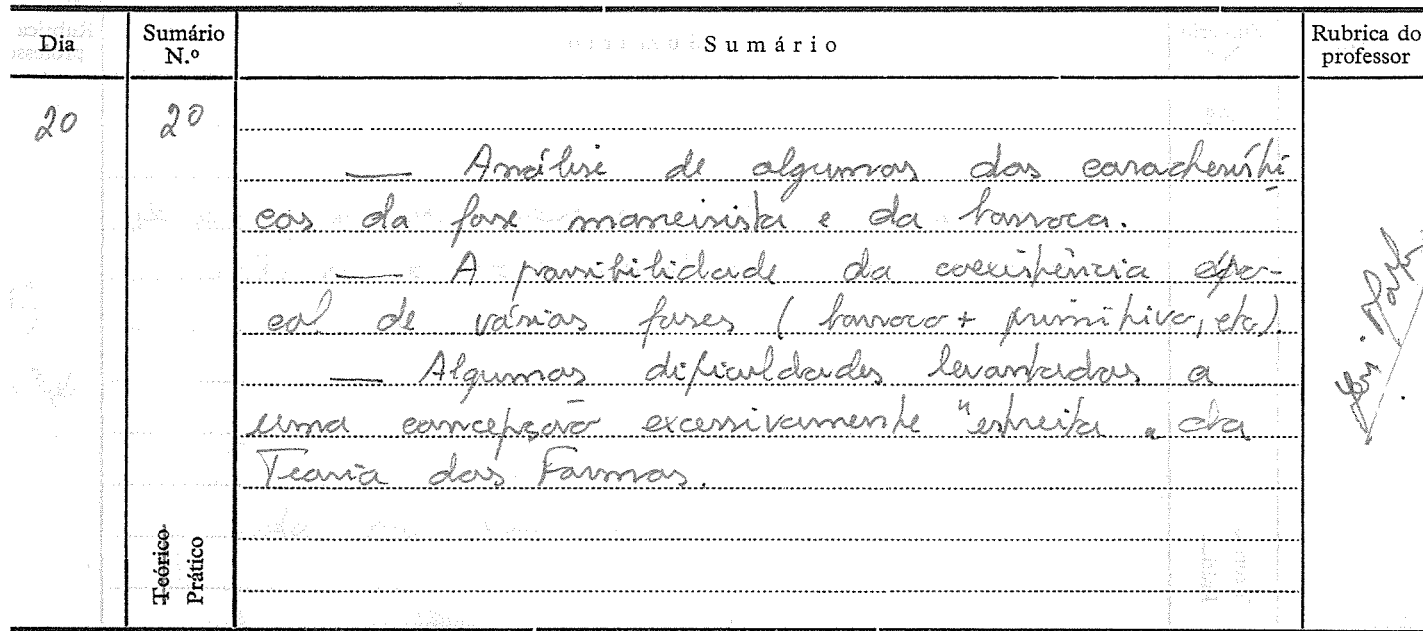 Dia Sumário N.º Sumário Rubrica do professor
20 20
— Análise de algumas das característi
cas da fase maneirista e da barroca.
— A possibilidade da coexistência epo-
cal de várias fases (barroco + primitivo, etc).
— Algumas dificuldades levantadas a
uma concepção excessivamente "estreita" da
Teoria das Formas.
Teórico
Prático